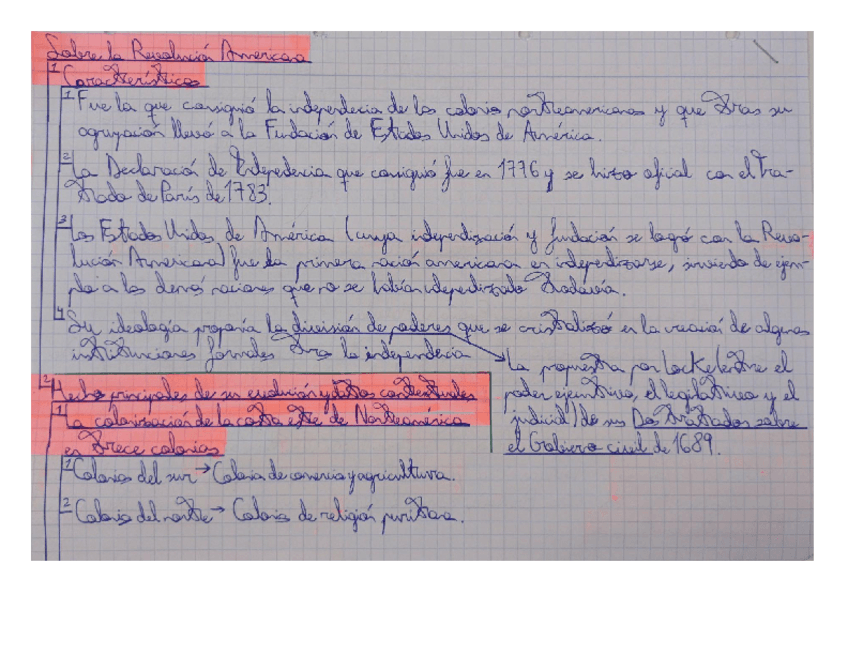 Sobre la Revolución Americana
1 Características
1 Fue la que consiguió la independecia de las colonias norteamericanas y que tras su
agrupación llevó a la Fundación de Estados Unidos de América.
2 La Declaración de Independencia que consiguió fue en 1776 y se hizo oficial con el Tra-
tado de París de 1783.
3 Los Estados Unidos de América (cuya independización y fundación se logró con la Revo-
lución Americana) fue la primera nación americana en independizarse, sirviendo de ejem-
plo a las demás naciones que no se habían independizado todavía.
4 Su ideología proponía la división de poderes que se cristalizó en la creación de algunas
instituciones formales tras la independencia
La propuesta por Locke (entre el
poder ejecutivo, el legislativo y el
judicial) de sus Dos Tratados sobre
el Gobierno civil de 1689.
2 Hechos principales de su evolución y datos contextuales
1 La colonización de la costa este de Norteamérica
en trece colonias
1 Colonias del sur → Colonias de comercio y agricultura.
2 Colonias del norte → Colonias de religión puritana.